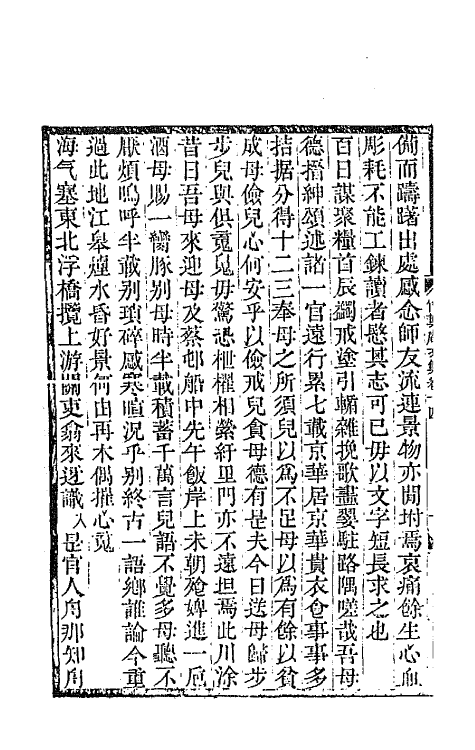 備而躊躇出處感念師友流連景物亦間坿焉哀痛餘生心血
彫耗不能工鍊讀者愍其志可已毋以文字短長求之也
百日謀裹糧首辰蠲戒塗引輀雜挽歌畫翣駐路隅嗟哉吾母
德搢紳頌述詒一官遠行累七載京華居京華貴衣食事事多
拮据分得十二三奉母之所須兒以爲不足母以爲有餘以貧
成母儉兒心何安乎以儉戒兒貪母德有是夫今日送母歸步
步兒與俱寃鬼毋驚恐枻櫂相縈紆里門亦不遠坦焉此川涂
昔日吾母來迎母及蔡邨船中先午飯岸上未朝飧婢進一卮
酒母賜一臠豚別母時半載積蓄千萬言兒語不覺多母聽不
厭煩嗚呼半載別瑣碎感寒暄況乎別終古一語鄉誰論今重
過此地江皋煙水昏好景何由再木偶摧心寃
海气塞東北浮橋攬上游關吏翁來迓識人是官人舟那知舟